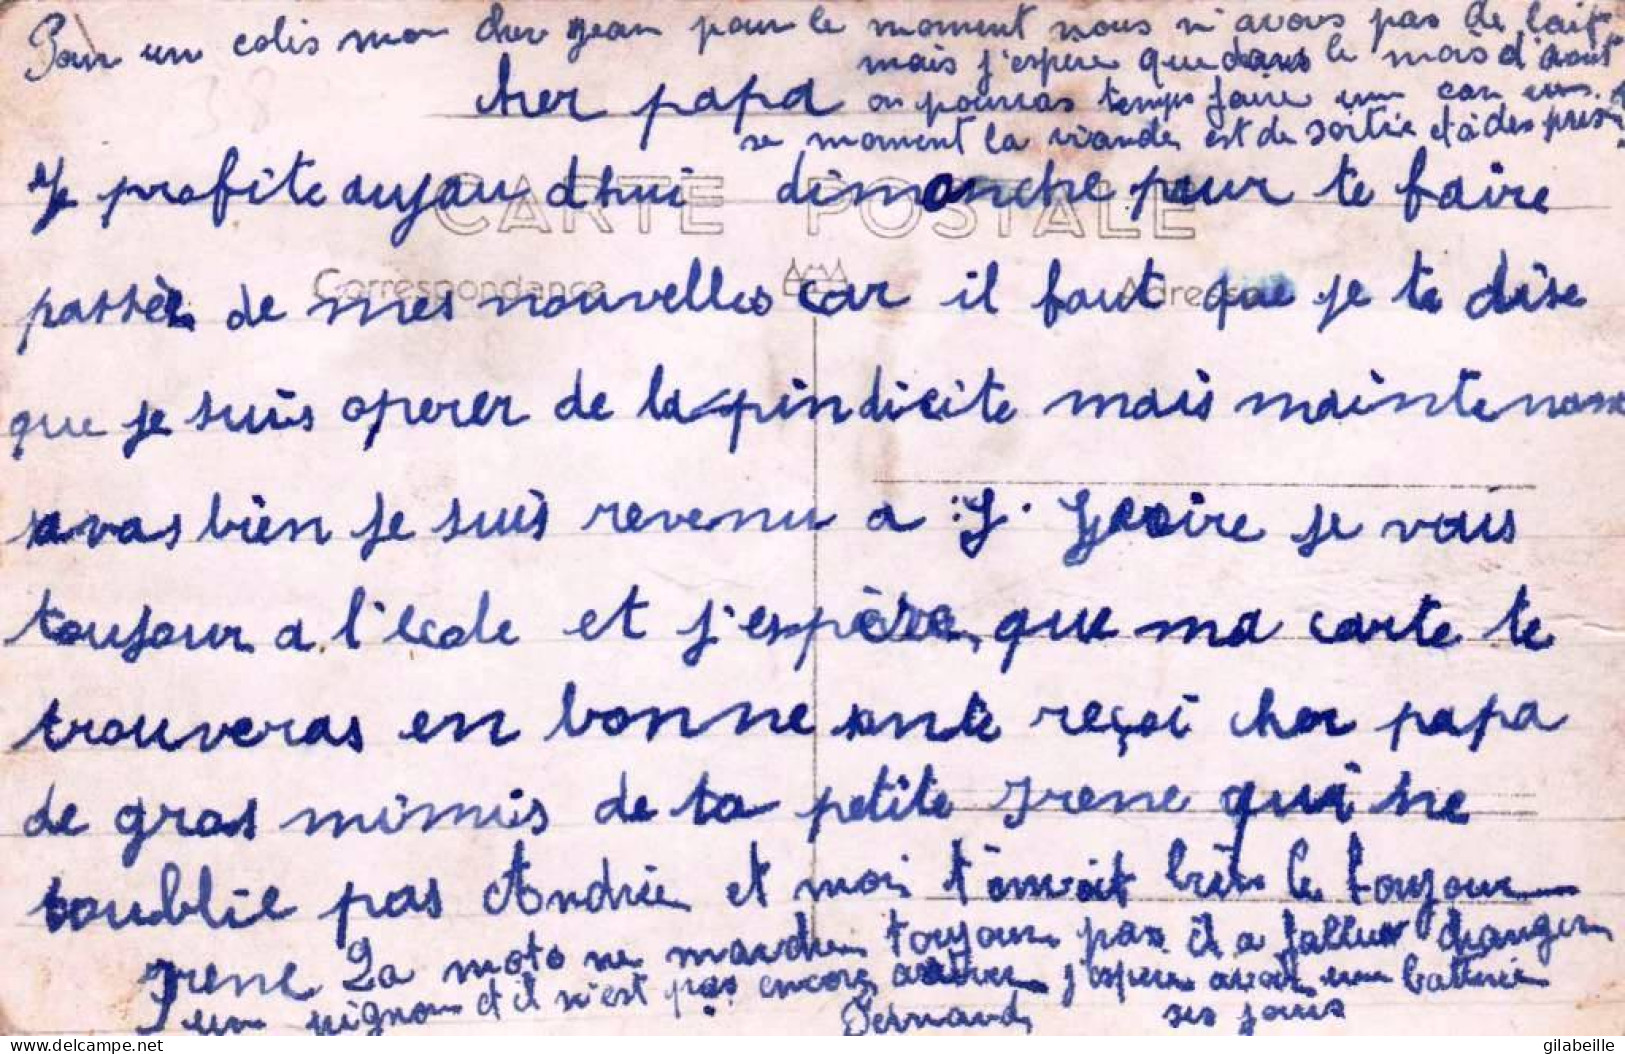 Pour un colis mon cher jean pour le moment nous n'avons pas de lait
mais j'espère que dans le mois d'aout
on pouras temps faire un car
se moment la viande est de sortie et à des prix
cher papa
38
Je profite aujour dhui dimanche pour te faire
CARTE POSTALE
Correspondance
Adresse
passèr de mes nouvelles car il faut que je te dise
que je suis operer de la pindicite mais maintenan
avas bien je suis revenu a S. Geoire je vais
toujour a l'ecole et j'espère que ma carte te
trouveras en bonne sante reçoi cher papa
de gros mimis de ta petite Irene qui ne
toublie pas Andrée et moi t'envoit bien le toujour
Irene La moto ne marche toujour pas il a fallut changer
un pignon et il n'est pas encore arriver j'espère avoir une batterie
Fernand ses jours
gilabeille
delcampe.net